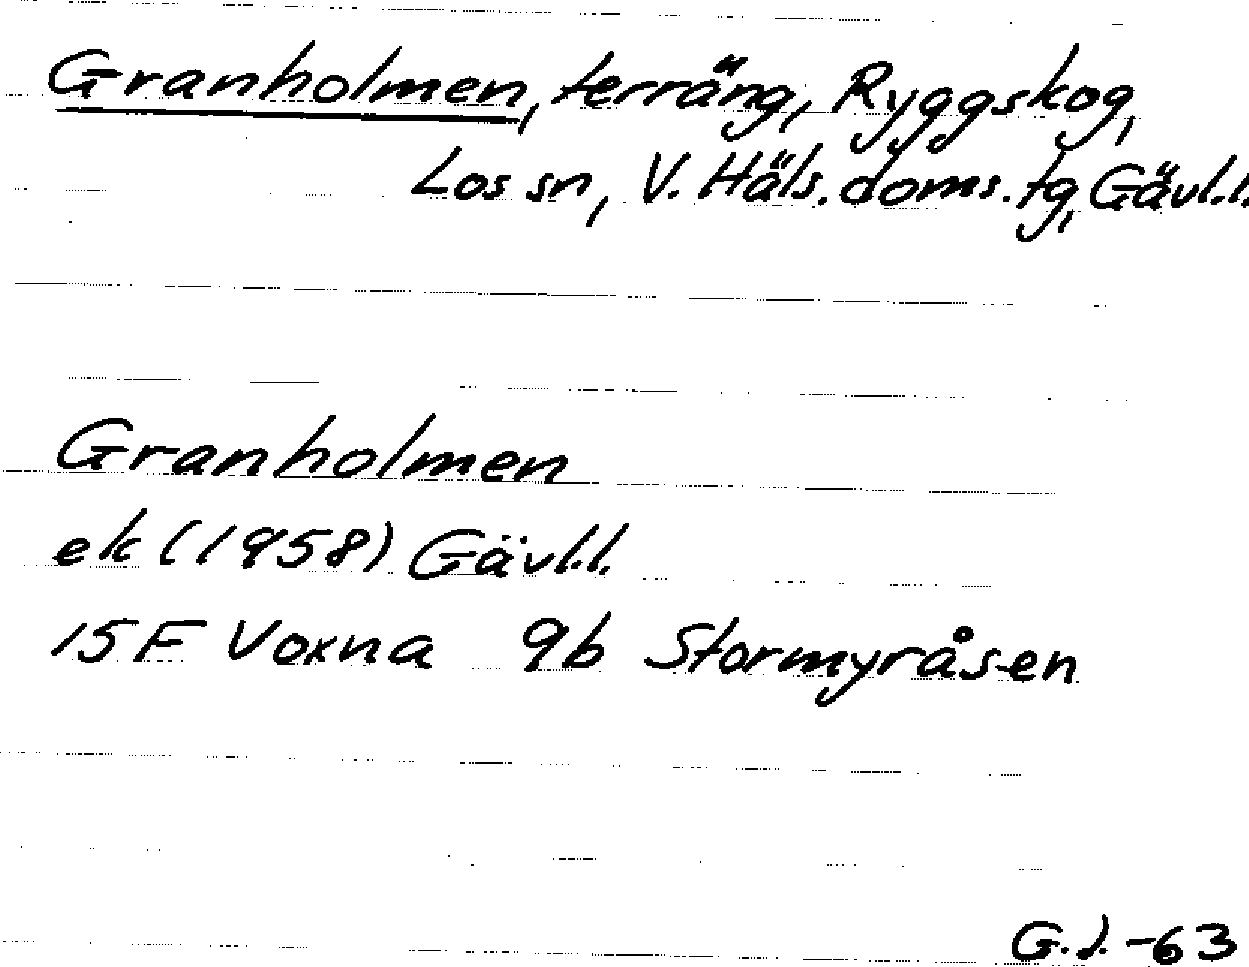 Granholmen, terräng, Ryggskog,
Los sn, V. Häls. doms. tg, Gävl.l.
Granholmen
ek (1958) Gävl.l.
15F Voxna 9b Stormyråsen
G.J. -63